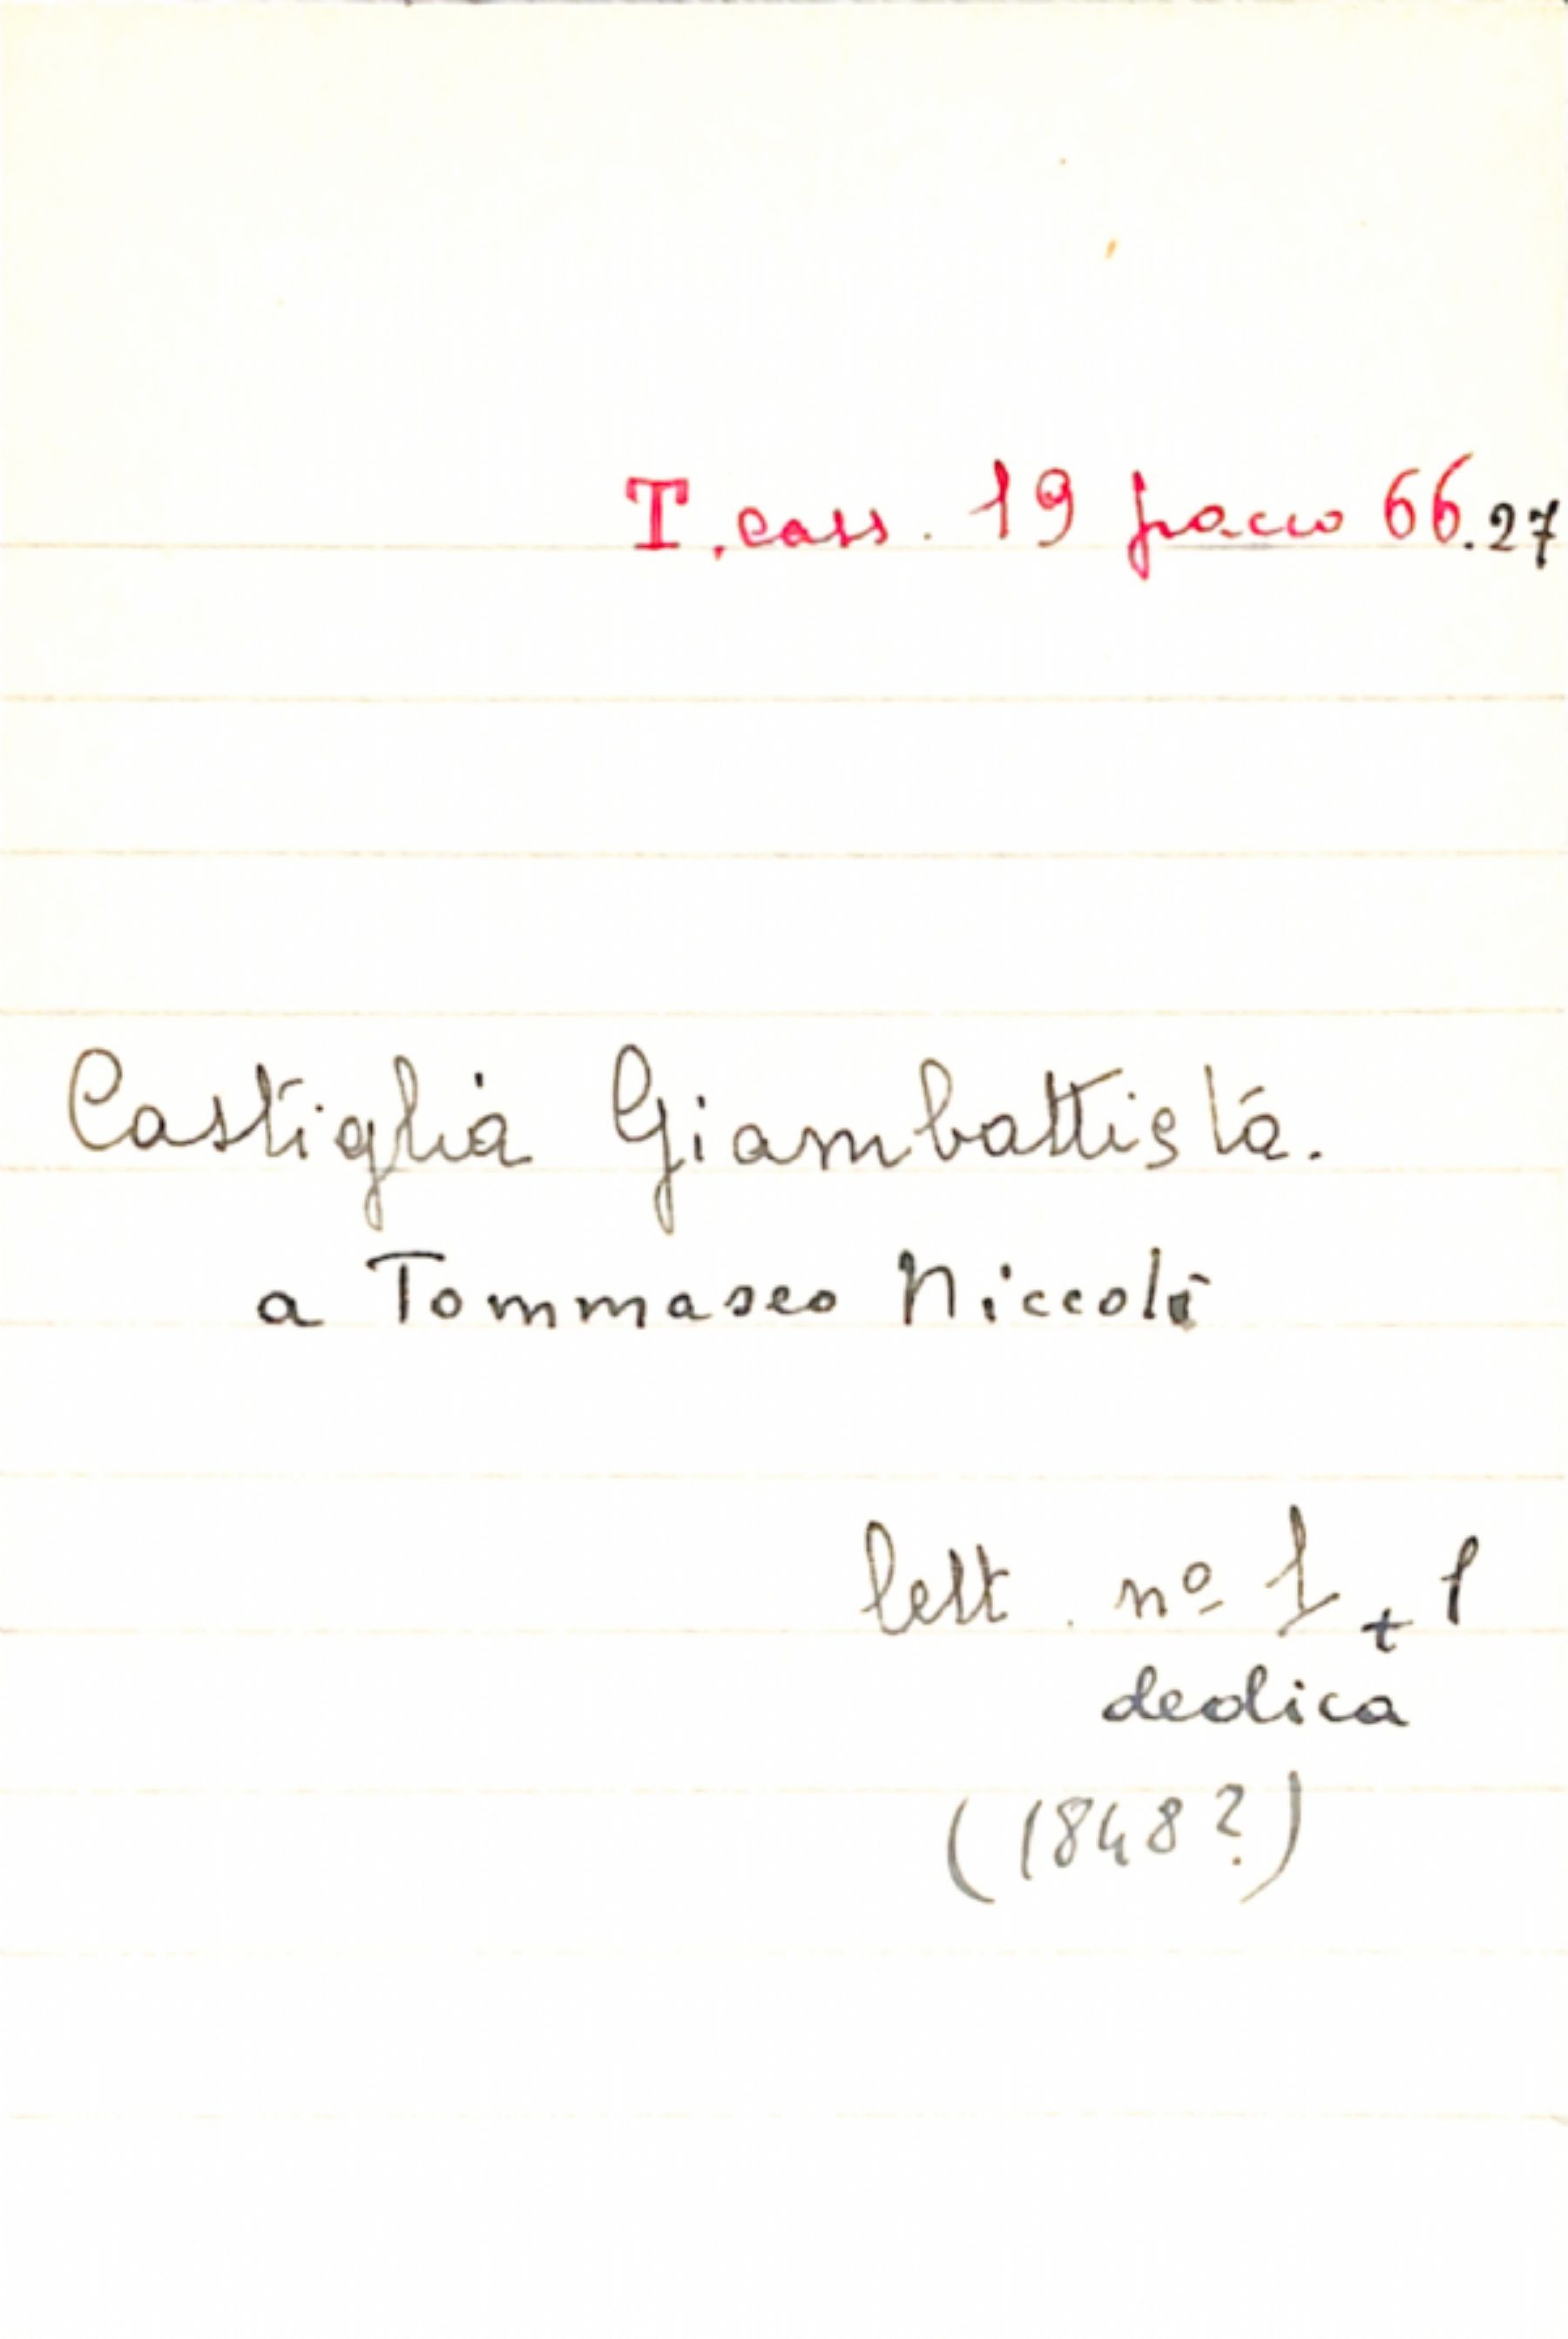 T. cass. 19 pacco 66.27
Castiglia Giambattista.
a Tommaseo Niccolò
lett. nº 1 + 1
dedica
(1848?)